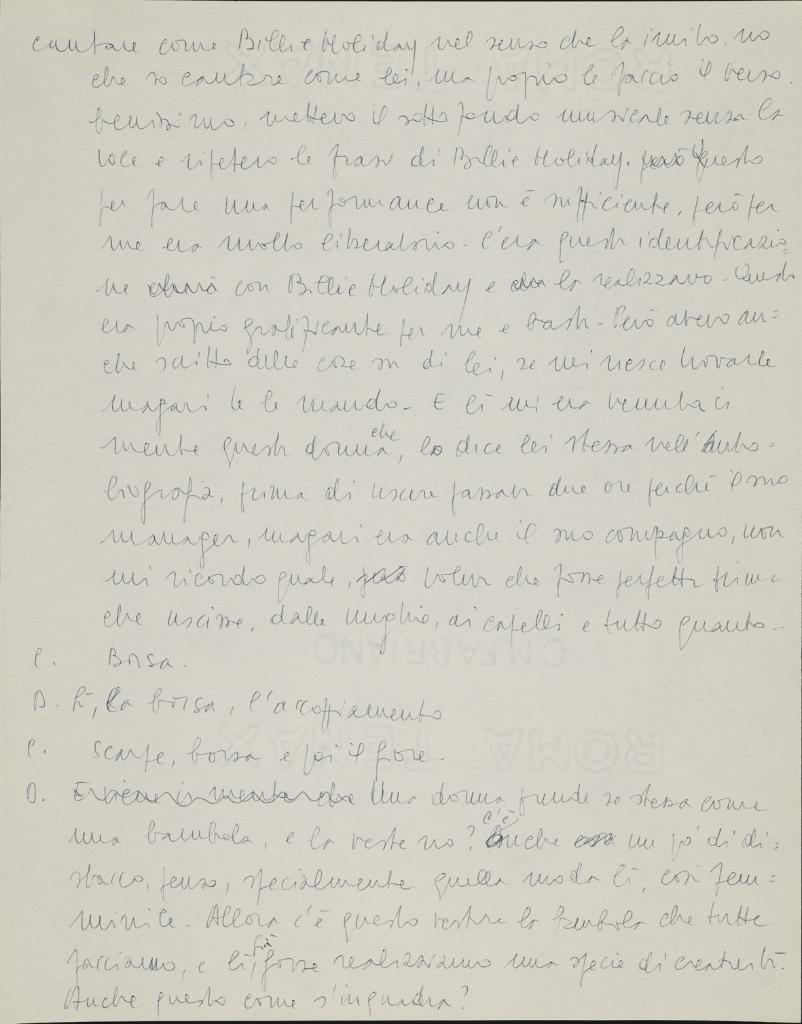 cantare come Billie Holiday nel senso che la imito, no
che so cantare come lei, ma proprio le faccio il verso
benissimo, mettevo il sottofondo musicale senza la
voce e ripetevo le frasi di Billie Holiday. questo
per fare una performance non è sufficiente, però per
me era molto liberatorio. C'era questa identificazio=
ne con Billie Holiday e la realizzavo. Questo
era proprio gratificante per me e basta. Però avevo an=
che scritto delle cose su di lei, se mi riesce trovarle
magari te le mando. E lì mi era venuta in
mente questa donna che, lo dice lei stessa nell'Auto=
biografia, prima di uscire passava due ore perché il suo
manager, magari era anche il suo compagno, non
mi ricordo quale, voleva che fosse perfetta prima
che uscisse, dalle unghie, ai capelli e tutto quanto...
C. Borsa.
D. Sì, la borsa, l'accoppiamento
C. Scarpe, borsa e poi il fiore.
D. Una donna prende se stessa come
una bambola, e la veste no? C'è anche un po' di di=
stacco, penso, specialmente quella moda lì, così fem=
minile. Allora c'è questo vestire la bambola che tutte
facciamo, e lì, già forse realizzavamo una specie di creatività.
Anche questo come s'inquadra?
C.M.FABRIANO
ROMA TENAX